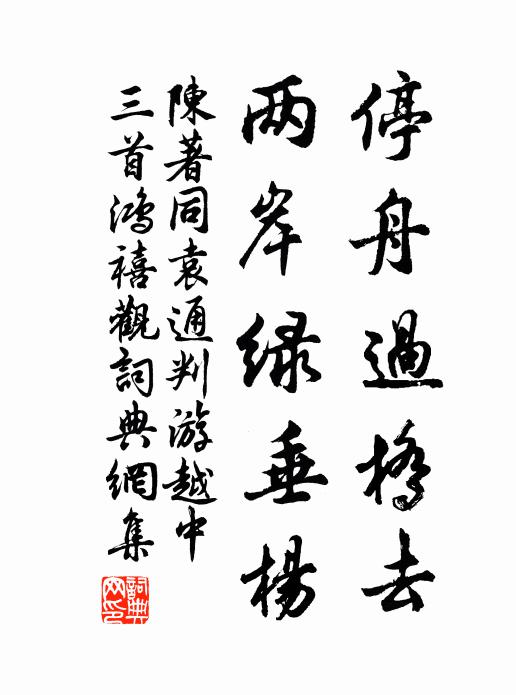 停舟過橋去
两岸緑垂楊
陳著同袁通判游越中
三首鴻禧觀詞典網集
詞典网印